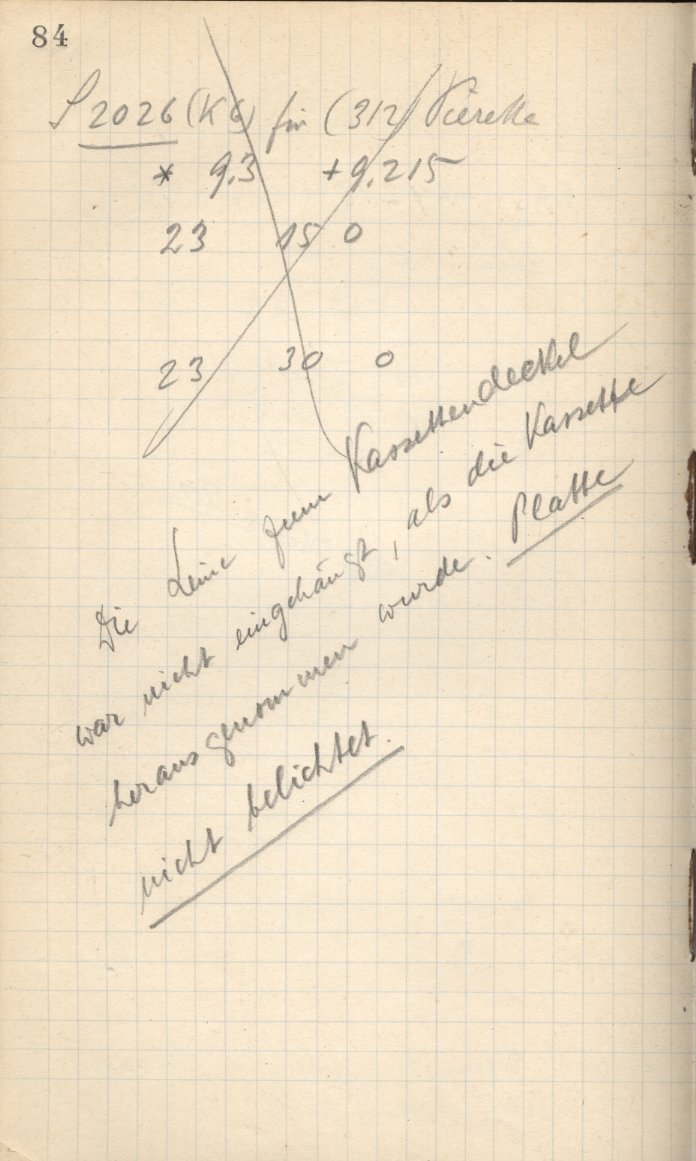 84
S 2026 (K6) für (312) Pierette
* 9.3 + 9.215
23 15 0
23 30 0
Die Leine zum Kassettendeckel
war nicht eingehängt, als die Kassette
herausgenommen wurde. Platte
nicht belichtet.